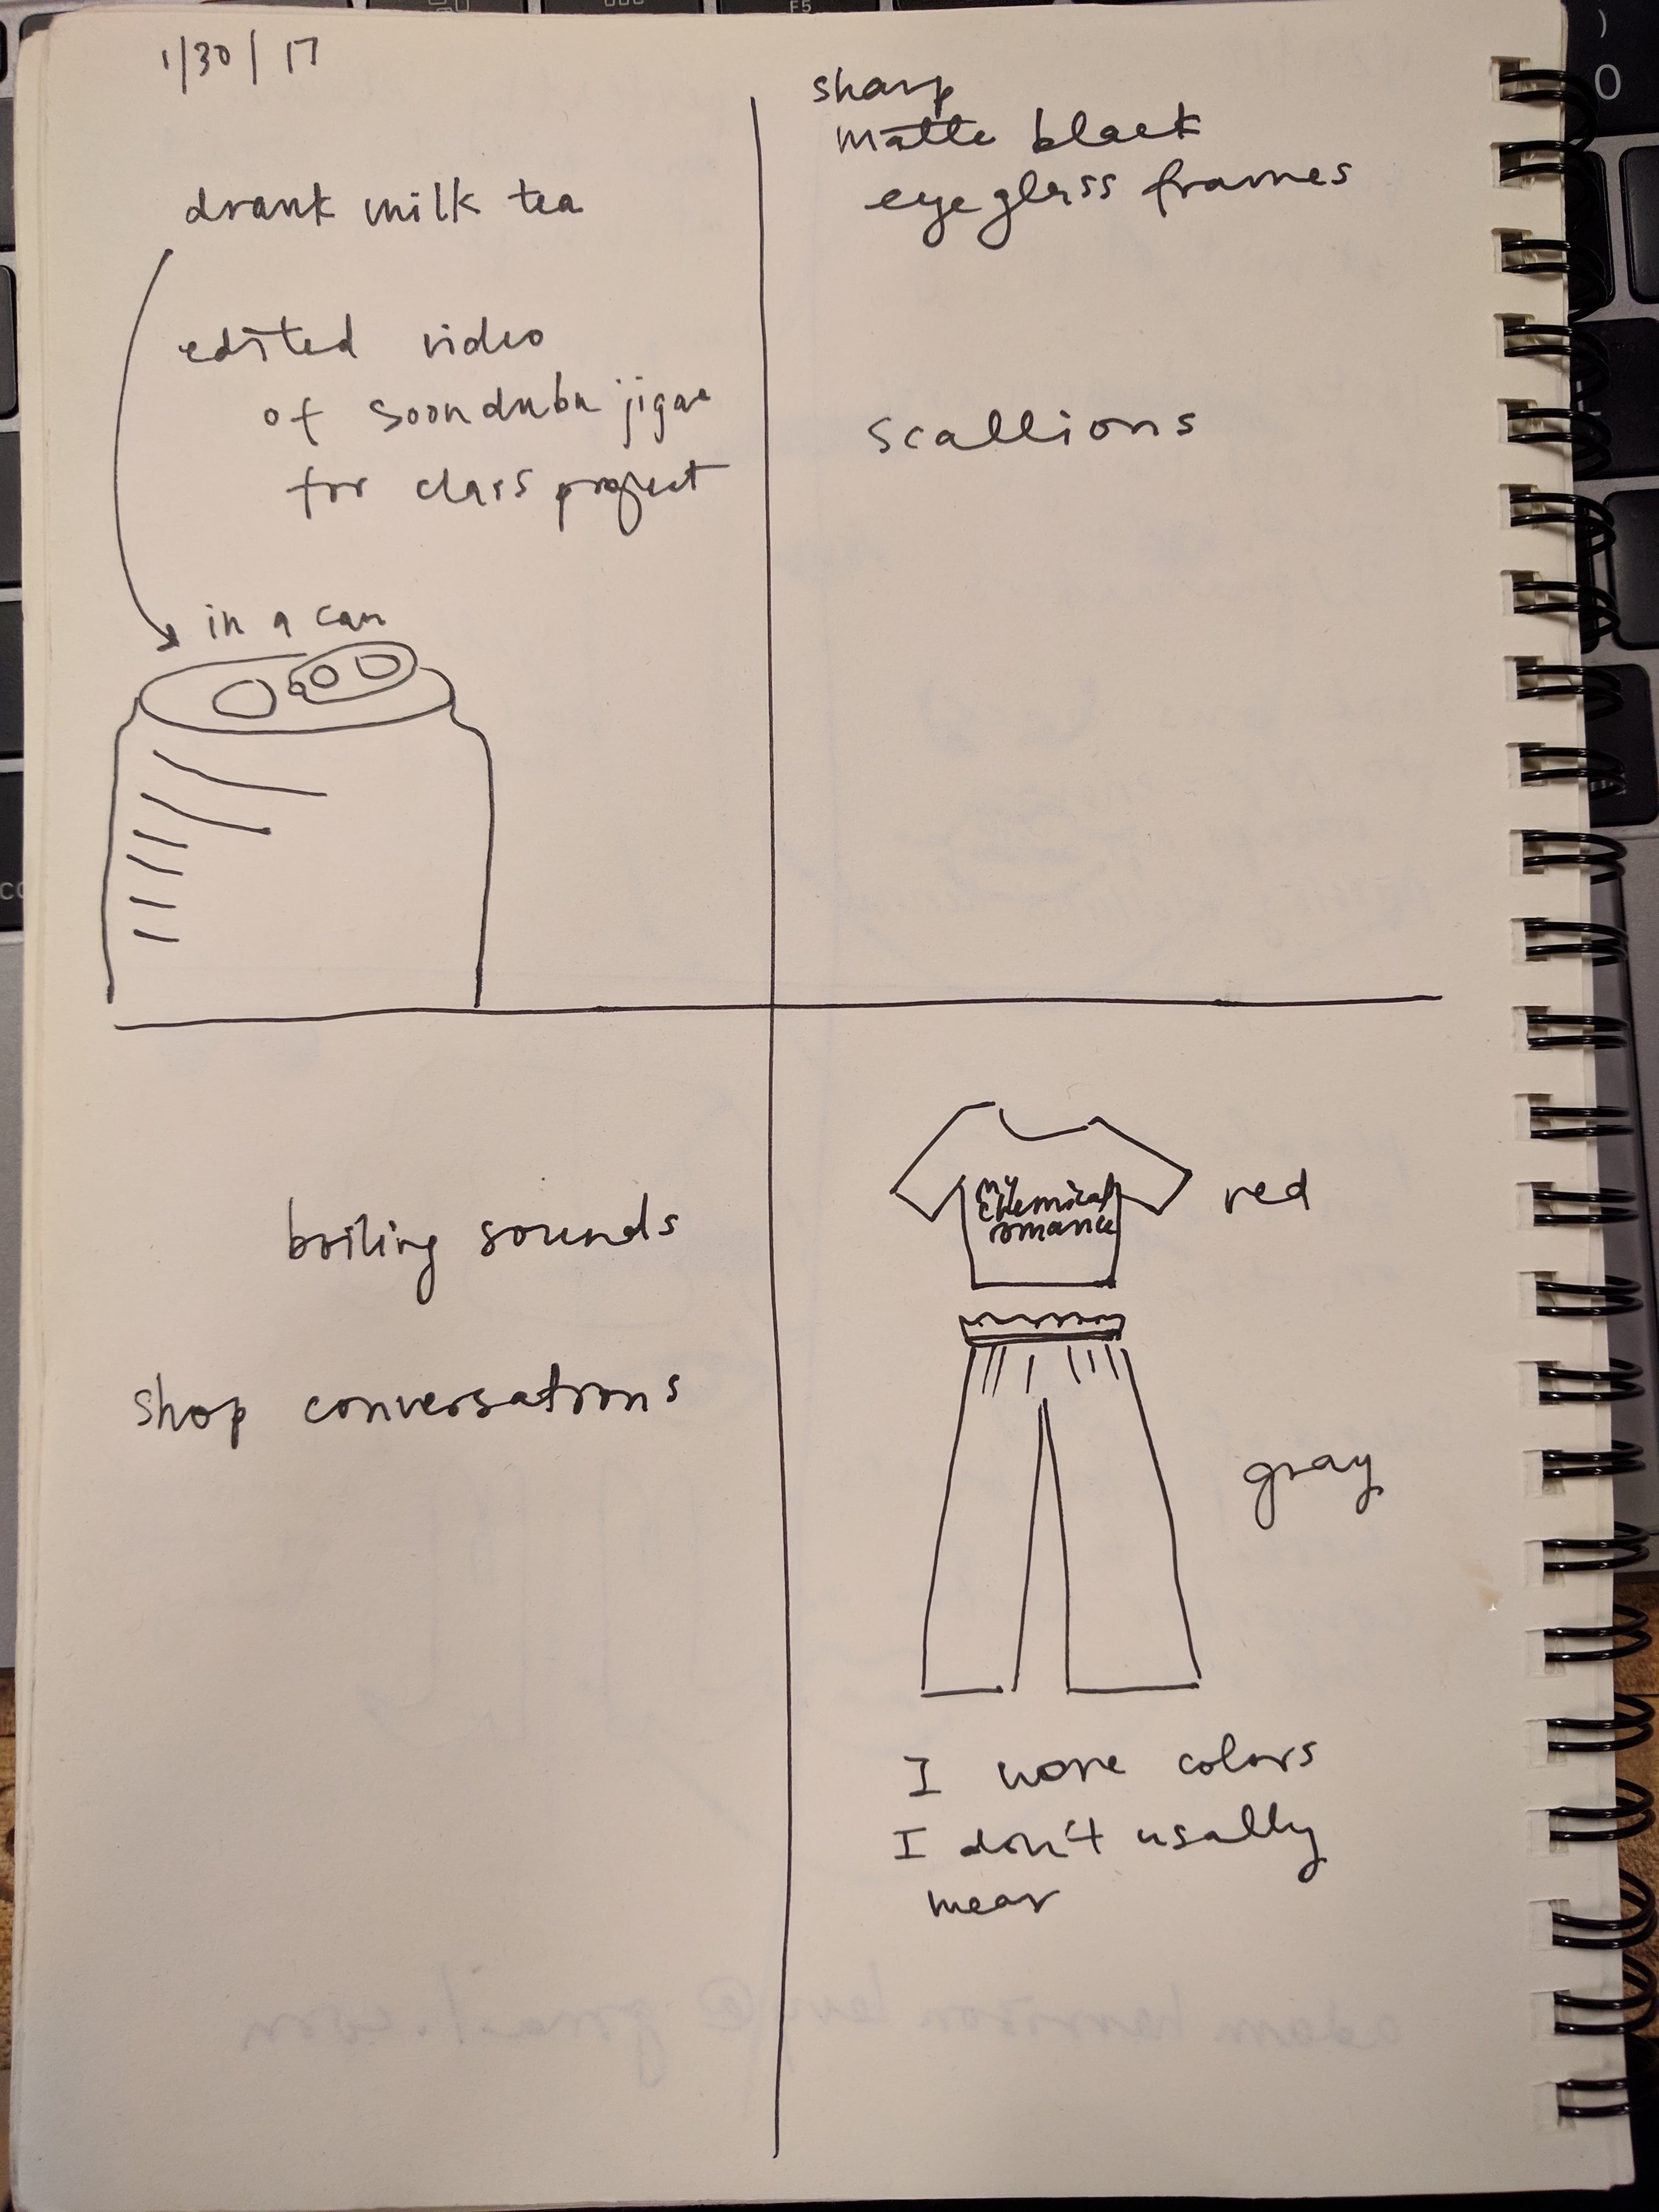 1/30/17
drank milk tea
edited video
of soondubu jigae
for class project
in a can
sharp
matte black
eyeglass frames
scallions
boiling sounds
shop conversations
my
chemical
romance
red
gray
I wore colors
I don't usally
wear
F5
)
0